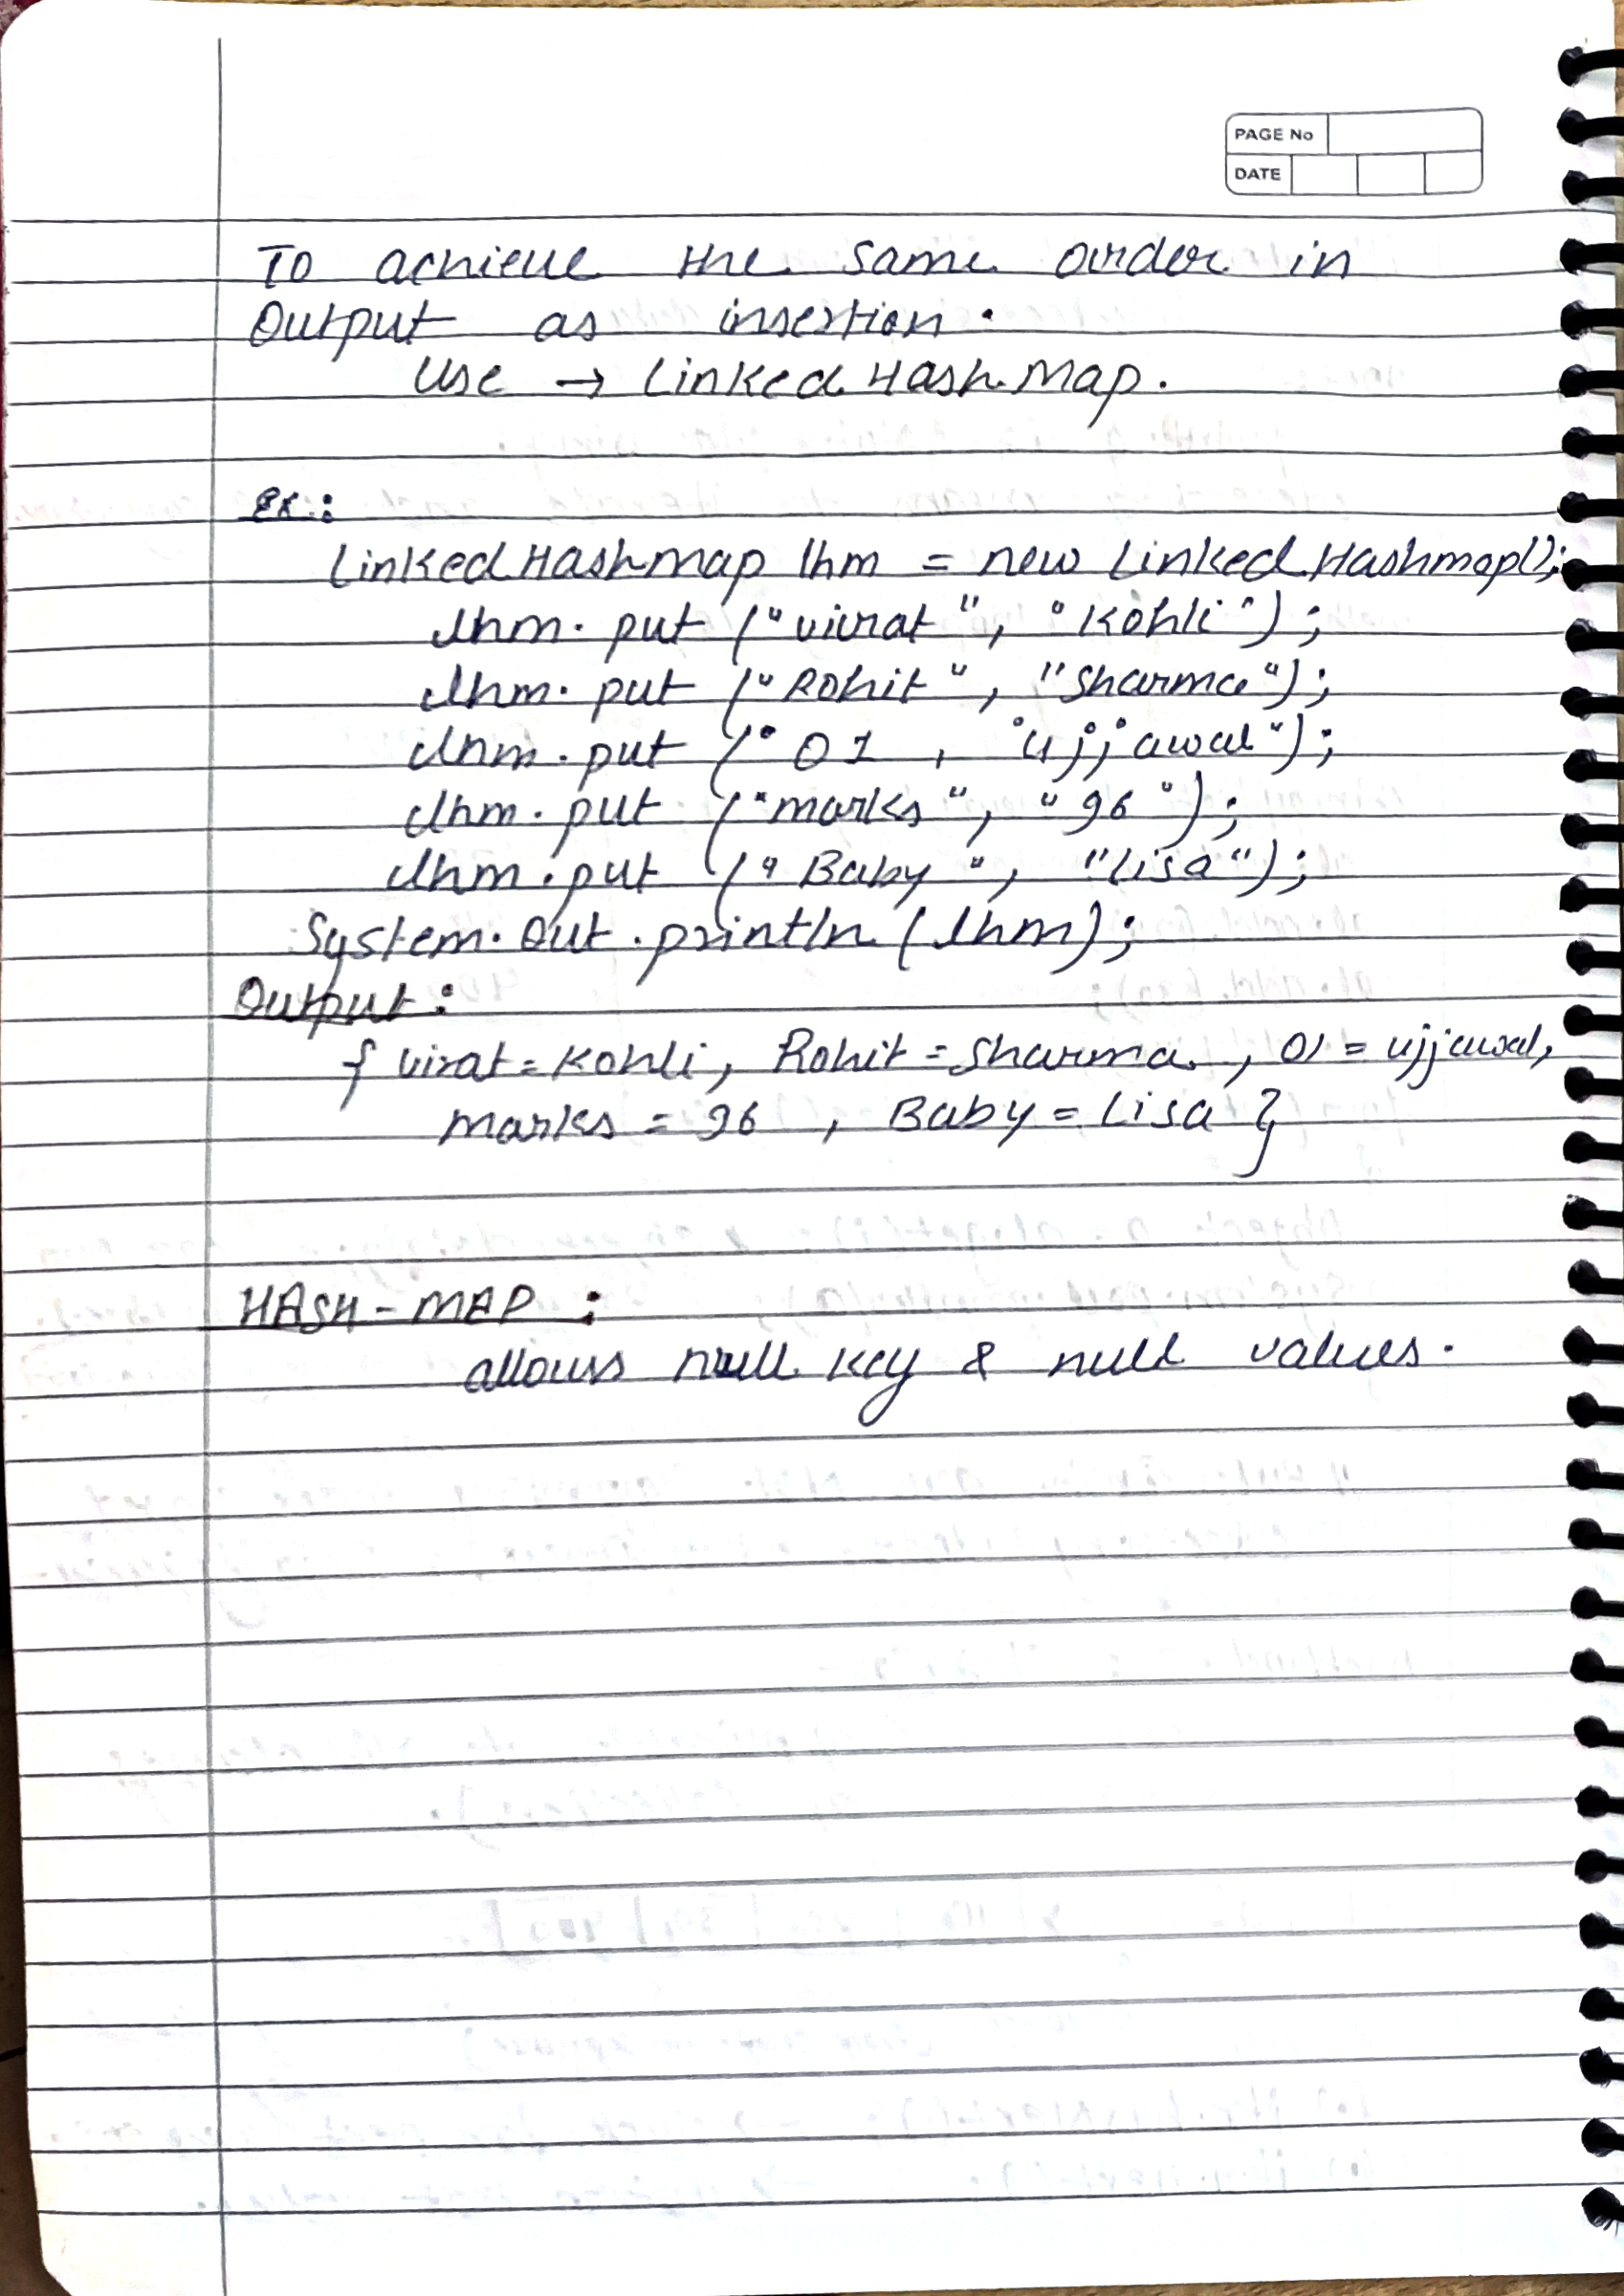 PAGE No
DATE
To achieve the same order in
Output as insertion.
Use → Linked HashMap.
Ex.:
LinkedHashmap lhm = new Linked Hashmap();
lhm. put ("virat", "Kohli");
lhm. put ("Rohit", "Sharma");
lhm. put (" 01 , "ujjawal");
lhm. put ("marks", "96");
lhm. put ("Baby", "Lisa");
System. Out. println (lhm);
Output:
{ virat = Kohli, Rohit = Sharma, 01 = ujjawal,
marks = 96, Baby = Lisa }
HASH-MAP :
allows null key & null values.